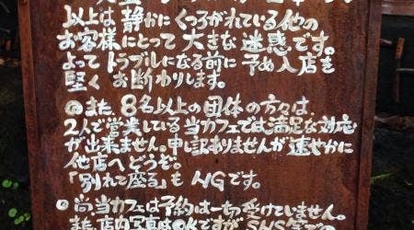 以上は静かにくつろがれている他の
お客様にとって大きな迷惑です。
よってトラブルになる前に予め入店も
堅くお断わりします。
◎また、8名以上の団体の方々は、
2人で営業している当カフェでは満足な対応
が出来ません。申し訳ありませんが速やかに
他店へどうぞ。
「別れて座る」もNGです。
◎尚、当カフェは予約は一切受けていません。
また、店内写真はOKですがSNS等の